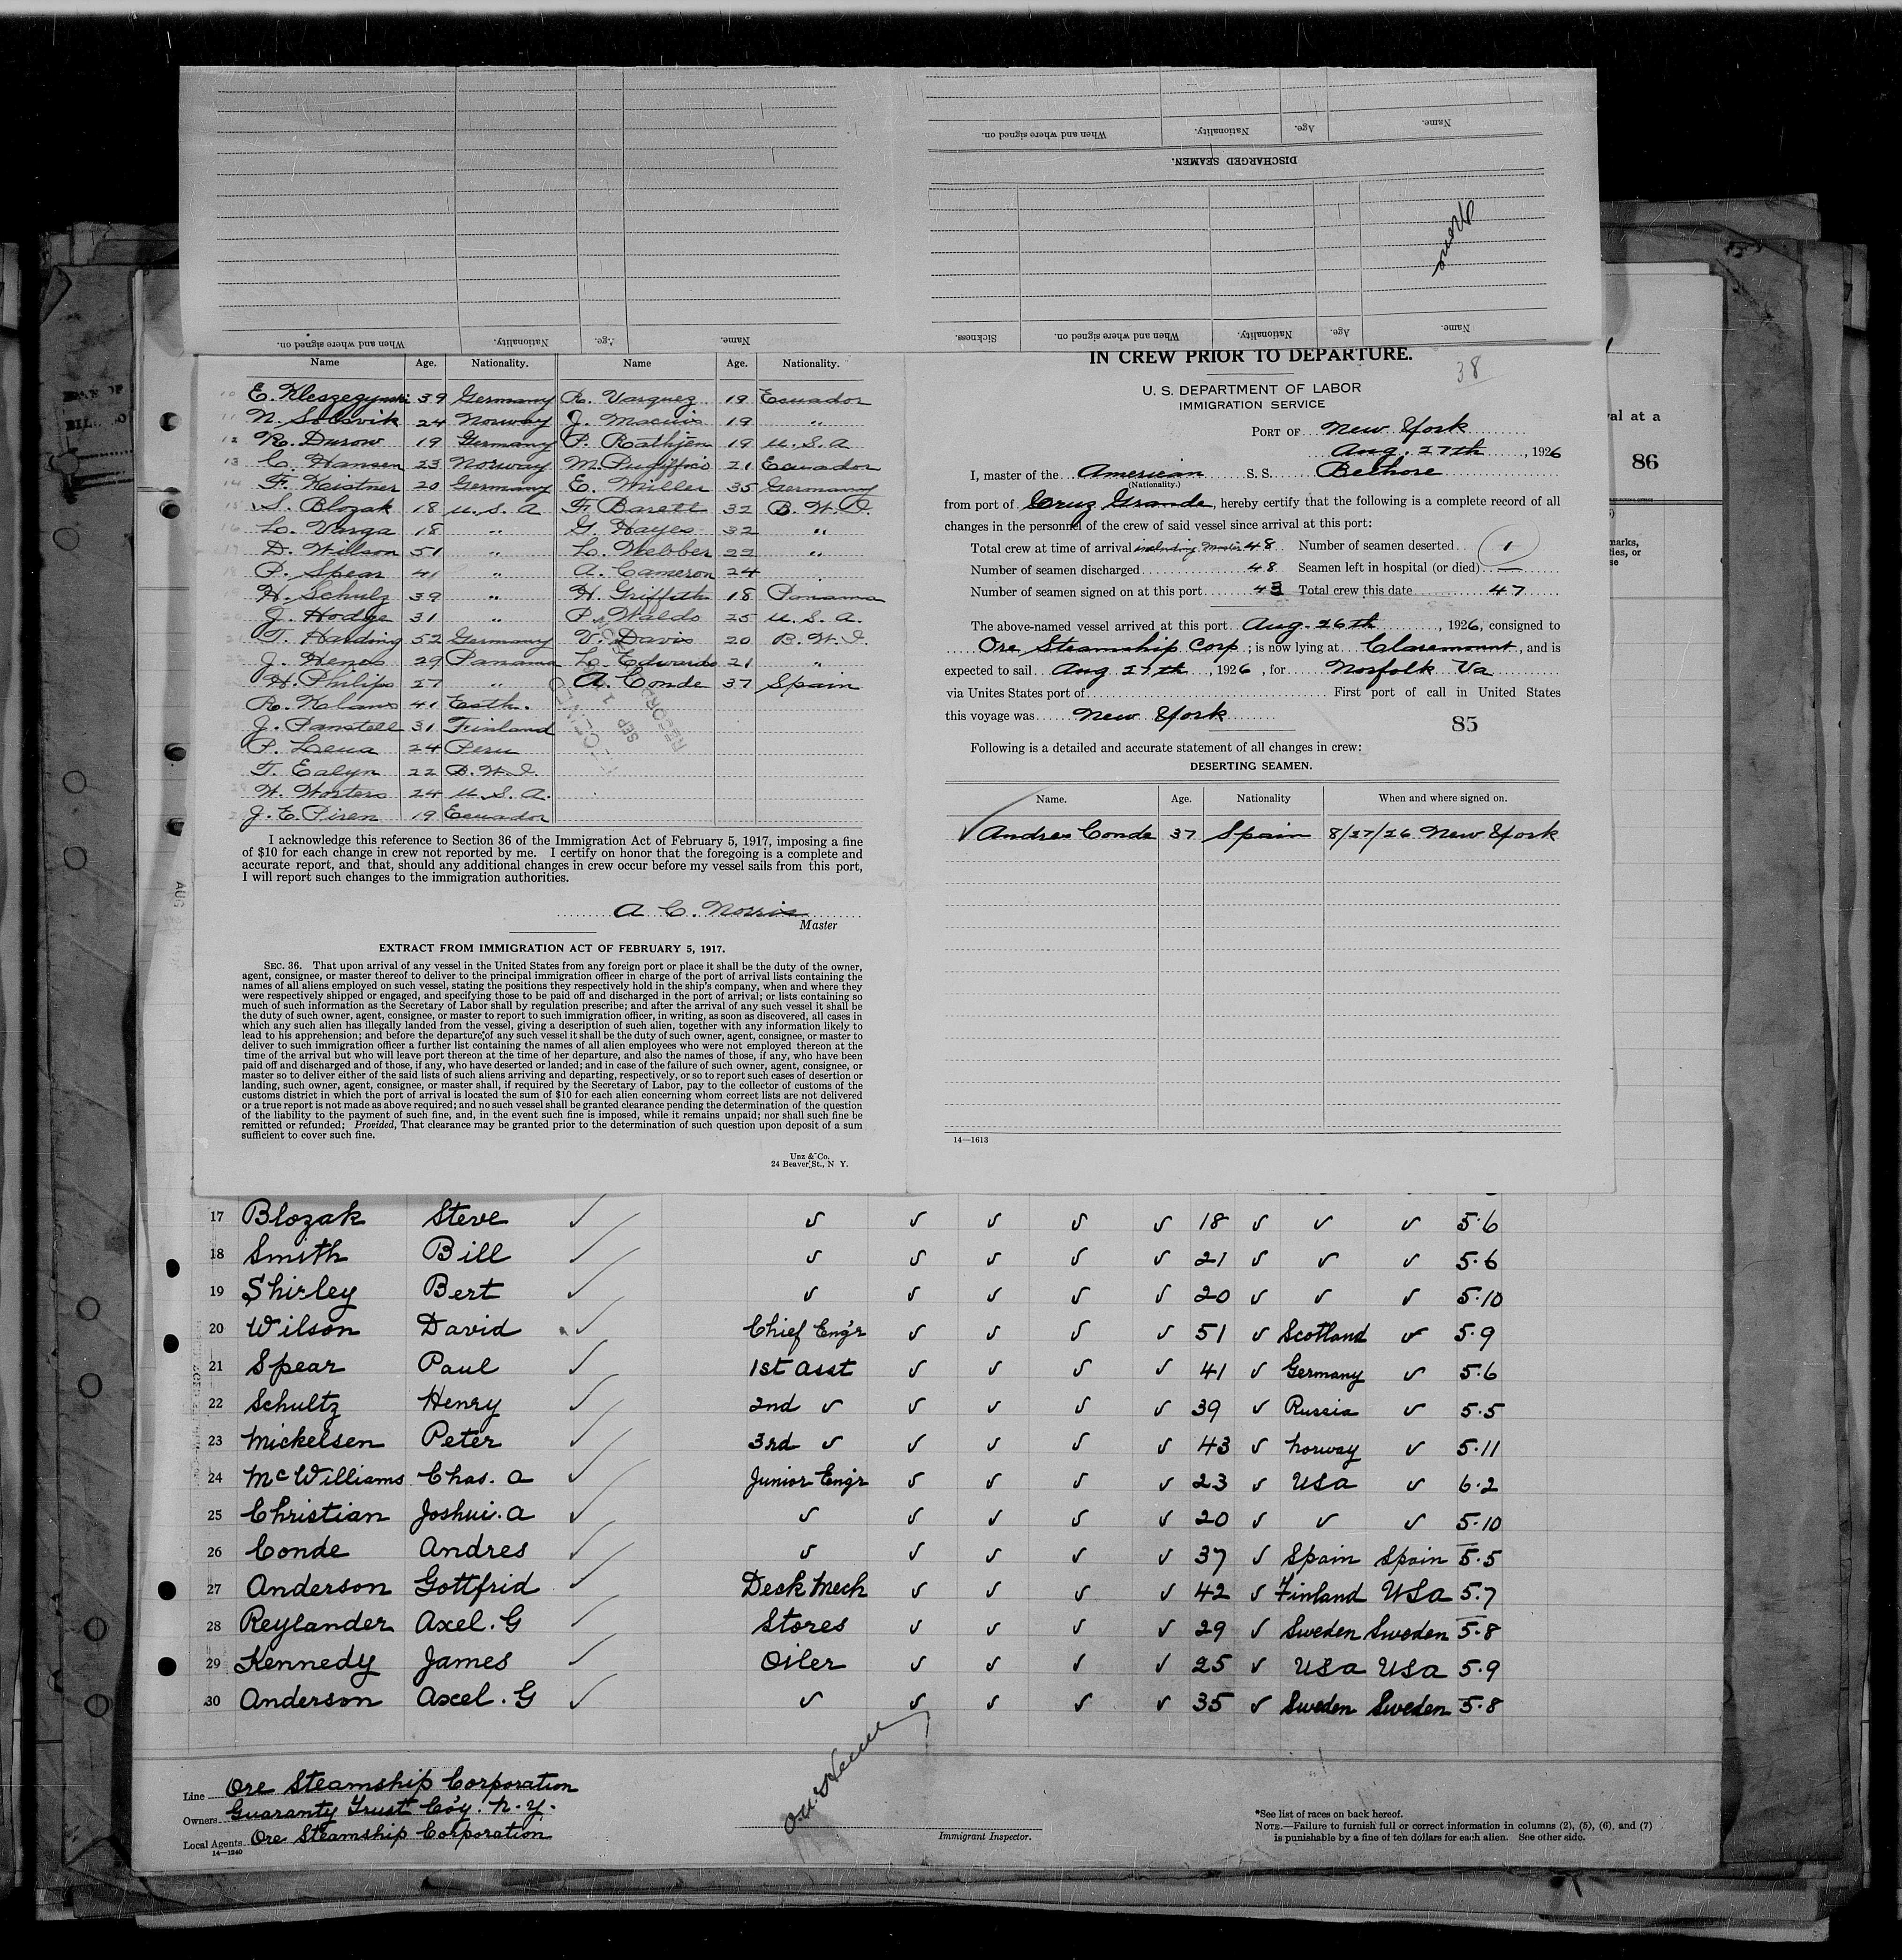 When and where signed on.
Nationality.
Age.
Name.
When and where signed on.
Nationality.
Age.
Name.
DISCHARGED SEAMEN.
None
Sickness.
When and where signed on.
Nationality.
Age.
Name.
Name Age. Nationality. Name Age. Nationality.
10 E. Kleszezynski 39 Germany R. Vasquez 19 Ecuador
11 N. Solsvik 24 Norway J. 19 "
12 R. Durow 19 Germany P. Rathjen 19 U.S.A
13 C. Hansen 23 Norway M. 21 Ecuador
14 F. Kistner 20 Germany E. Miller 35 Germany
15 S. Blozak 18 U.S.A F. Barett 32 B.W.I.
16 L. Varga 18 " G. Hayes 32 "
17 D. Wilson 51 " L. Webber 22 "
P. Spear 41 " A. Cameron 24
H. Schulz 39 " H. Griffith 18 Panama
J. Hodge 31 " P. Waldo 25 U.S.A.
T. Harding 52 Germany V. Davis 20 B.W.I.
J. Henes 29 Panama L. Edwards 21 "
H. Philips 27 " A. Conde 37 Spain
R. 41 Esth.
J. Panstell 31 Finland
P. Lena 24 Peru
T. Ealyn 22 B.W.I.
W. Worters 24 U.S.A.
J.E. Piren 19 Ecuador
I acknowledge this reference to Section 36 of the Immigration Act of February 5, 1917, imposing a fine
of $10 for each change in crew not reported by me. I certify on honor that the foregoing is a complete and
accurate report, and that, should any additional changes in crew occur before my vessel sails from this port,
I will report such changes to the immigration authorities.
A C. Norris
Master
EXTRACT FROM IMMIGRATION ACT OF FEBRUARY 5, 1917.
SEC. 36. That upon arrival of any vessel in the United States from any foreign port or place it shall be the duty of the owner,
agent, consignee, or master thereof to deliver to the principal immigration officer in charge of the port of arrival lists containing the
names of all aliens employed on such vessel, stating the positions they respectively hold in the ship's company, when and where they
were respectively shipped or engaged, and specifying those to be paid off and discharged in the port of arrival; or lists containing so
much of such information as the Secretary of Labor shall by regulation prescribe; and after the arrival of any such vessel it shall be
the duty of such owner, agent, consignee, or master to report to such immigration officer, in writing, as soon as discovered, all cases in
which any such alien has illegally landed from the vessel, giving a description of such alien, together with any information likely to
lead to his apprehension; and before the departure of any such vessel it shall be the duty of such owner, agent, consignee, or master to
deliver to such immigration officer a further list containing the names of all alien employees who were not employed thereon at the
time of the arrival but who will leave port thereon at the time of her departure, and also the names of those, if any, who have been
paid off and discharged and of those, if any, who have deserted or landed; and in case of the failure of such owner, agent, consignee, or
master so to deliver either of the said lists of such aliens arriving and departing, respectively, or so to report such cases of desertion or
landing, such owner, agent, consignee, or master shall, if required by the Secretary of Labor, pay to the collector of customs of the
customs district in which the port of arrival is located the sum of $10 for each alien concerning whom correct lists are not delivered
or a true report is not made as above required; and no such vessel shall be granted clearance pending the determination of the question
of the liability to the payment of such fine, and, in the event such fine is imposed, while it remains unpaid; nor shall such fine be
remitted or refunded; Provided, That clearance may be granted prior to the determination of such question upon deposit of a sum
sufficient to cover such fine.
Unz & Co.
24 Beaver St., N Y.
IN CREW PRIOR TO DEPARTURE.
38
U. S. DEPARTMENT OF LABOR
IMMIGRATION SERVICE
PORT OF New York
Aug. 27th, 1926
I, master of the American S. S. Bethore
(Nationality.)
from port of Cruz Grande, hereby certify that the following is a complete record of all
changes in the personnel of the crew of said vessel since arrival at this port:
Total crew at time of arrival including Master 48 Number of seamen deserted 1
Number of seamen discharged 48 Seamen left in hospital (or died) —
Number of seamen signed on at this port 43 Total crew this date 47
The above-named vessel arrived at this port Aug. 26th, 1926, consigned to
Ore Steamship Corp; is now lying at Claremount, and is
expected to sail Aug 27th, 1926, for Norfolk Va
via Unites States port of First port of call in United States
this voyage was New York
85
Following is a detailed and accurate statement of all changes in crew:
DESERTING SEAMEN.
Name. Age. Nationality When and where signed on.
✓ Andres Conde 37 Spain 8/27/26 New York
14—1613
val at a
86
marks,
ties, or
se
AUG
17 Blozak Steve ✓ ✓ ✓ ✓ ✓ ✓ 18 ✓ ✓ ✓ 5.6
18 Smith Bill ✓ ✓ ✓ ✓ ✓ ✓ 21 ✓ ✓ ✓ 5.6
19 Shirley Bert ✓ ✓ ✓ ✓ ✓ ✓ 20 ✓ ✓ ✓ 5.10
20 Wilson David ✓ Chief Eng'r ✓ ✓ ✓ ✓ 51 ✓ Scotland ✓ 5.9
21 Spear Paul ✓ 1st Asst ✓ ✓ ✓ ✓ 41 ✓ Germany ✓ 5.6
22 Schultz Henry ✓ 2nd ✓ ✓ ✓ ✓ ✓ 39 ✓ Russia ✓ 5.5
23 Mickelsen Peter ✓ 3rd ✓ ✓ ✓ ✓ ✓ 43 ✓ Norway ✓ 5.11
24 McWilliams Chas. A ✓ Junior Eng'r ✓ ✓ ✓ ✓ 23 ✓ USA ✓ 6.2
25 Christian Joshui. A ✓ ✓ ✓ ✓ ✓ ✓ 20 ✓ ✓ ✓ 5.10
26 Conde Andres ✓ ✓ ✓ ✓ ✓ ✓ 37 ✓ Spain Spain 5.5
27 Anderson Gottfrid ✓ Deck Mech ✓ ✓ ✓ ✓ 42 ✓ Finland USA 5.7
28 Reylander Axel. G ✓ Stores ✓ ✓ ✓ ✓ 29 ✓ Sweden Sweden 5.8
29 Kennedy James ✓ Oiler ✓ ✓ ✓ ✓ 25 ✓ USA USA 5.9
30 Anderson Axel. G ✓ ✓ ✓ ✓ ✓ ✓ 35 ✓ Sweden Sweden 5.8
Line Ore Steamship Corporation
Owners Guaranty Trust Co'y. N.Y.
Local Agents Ore Steamship Corporation
14—1240
Immigrant Inspector.
*See list of races on back hereof.
NOTE.—Failure to furnish full or correct information in columns (2), (5), (6), and (7)
is punishable by a fine of ten dollars for each alien. See other side.